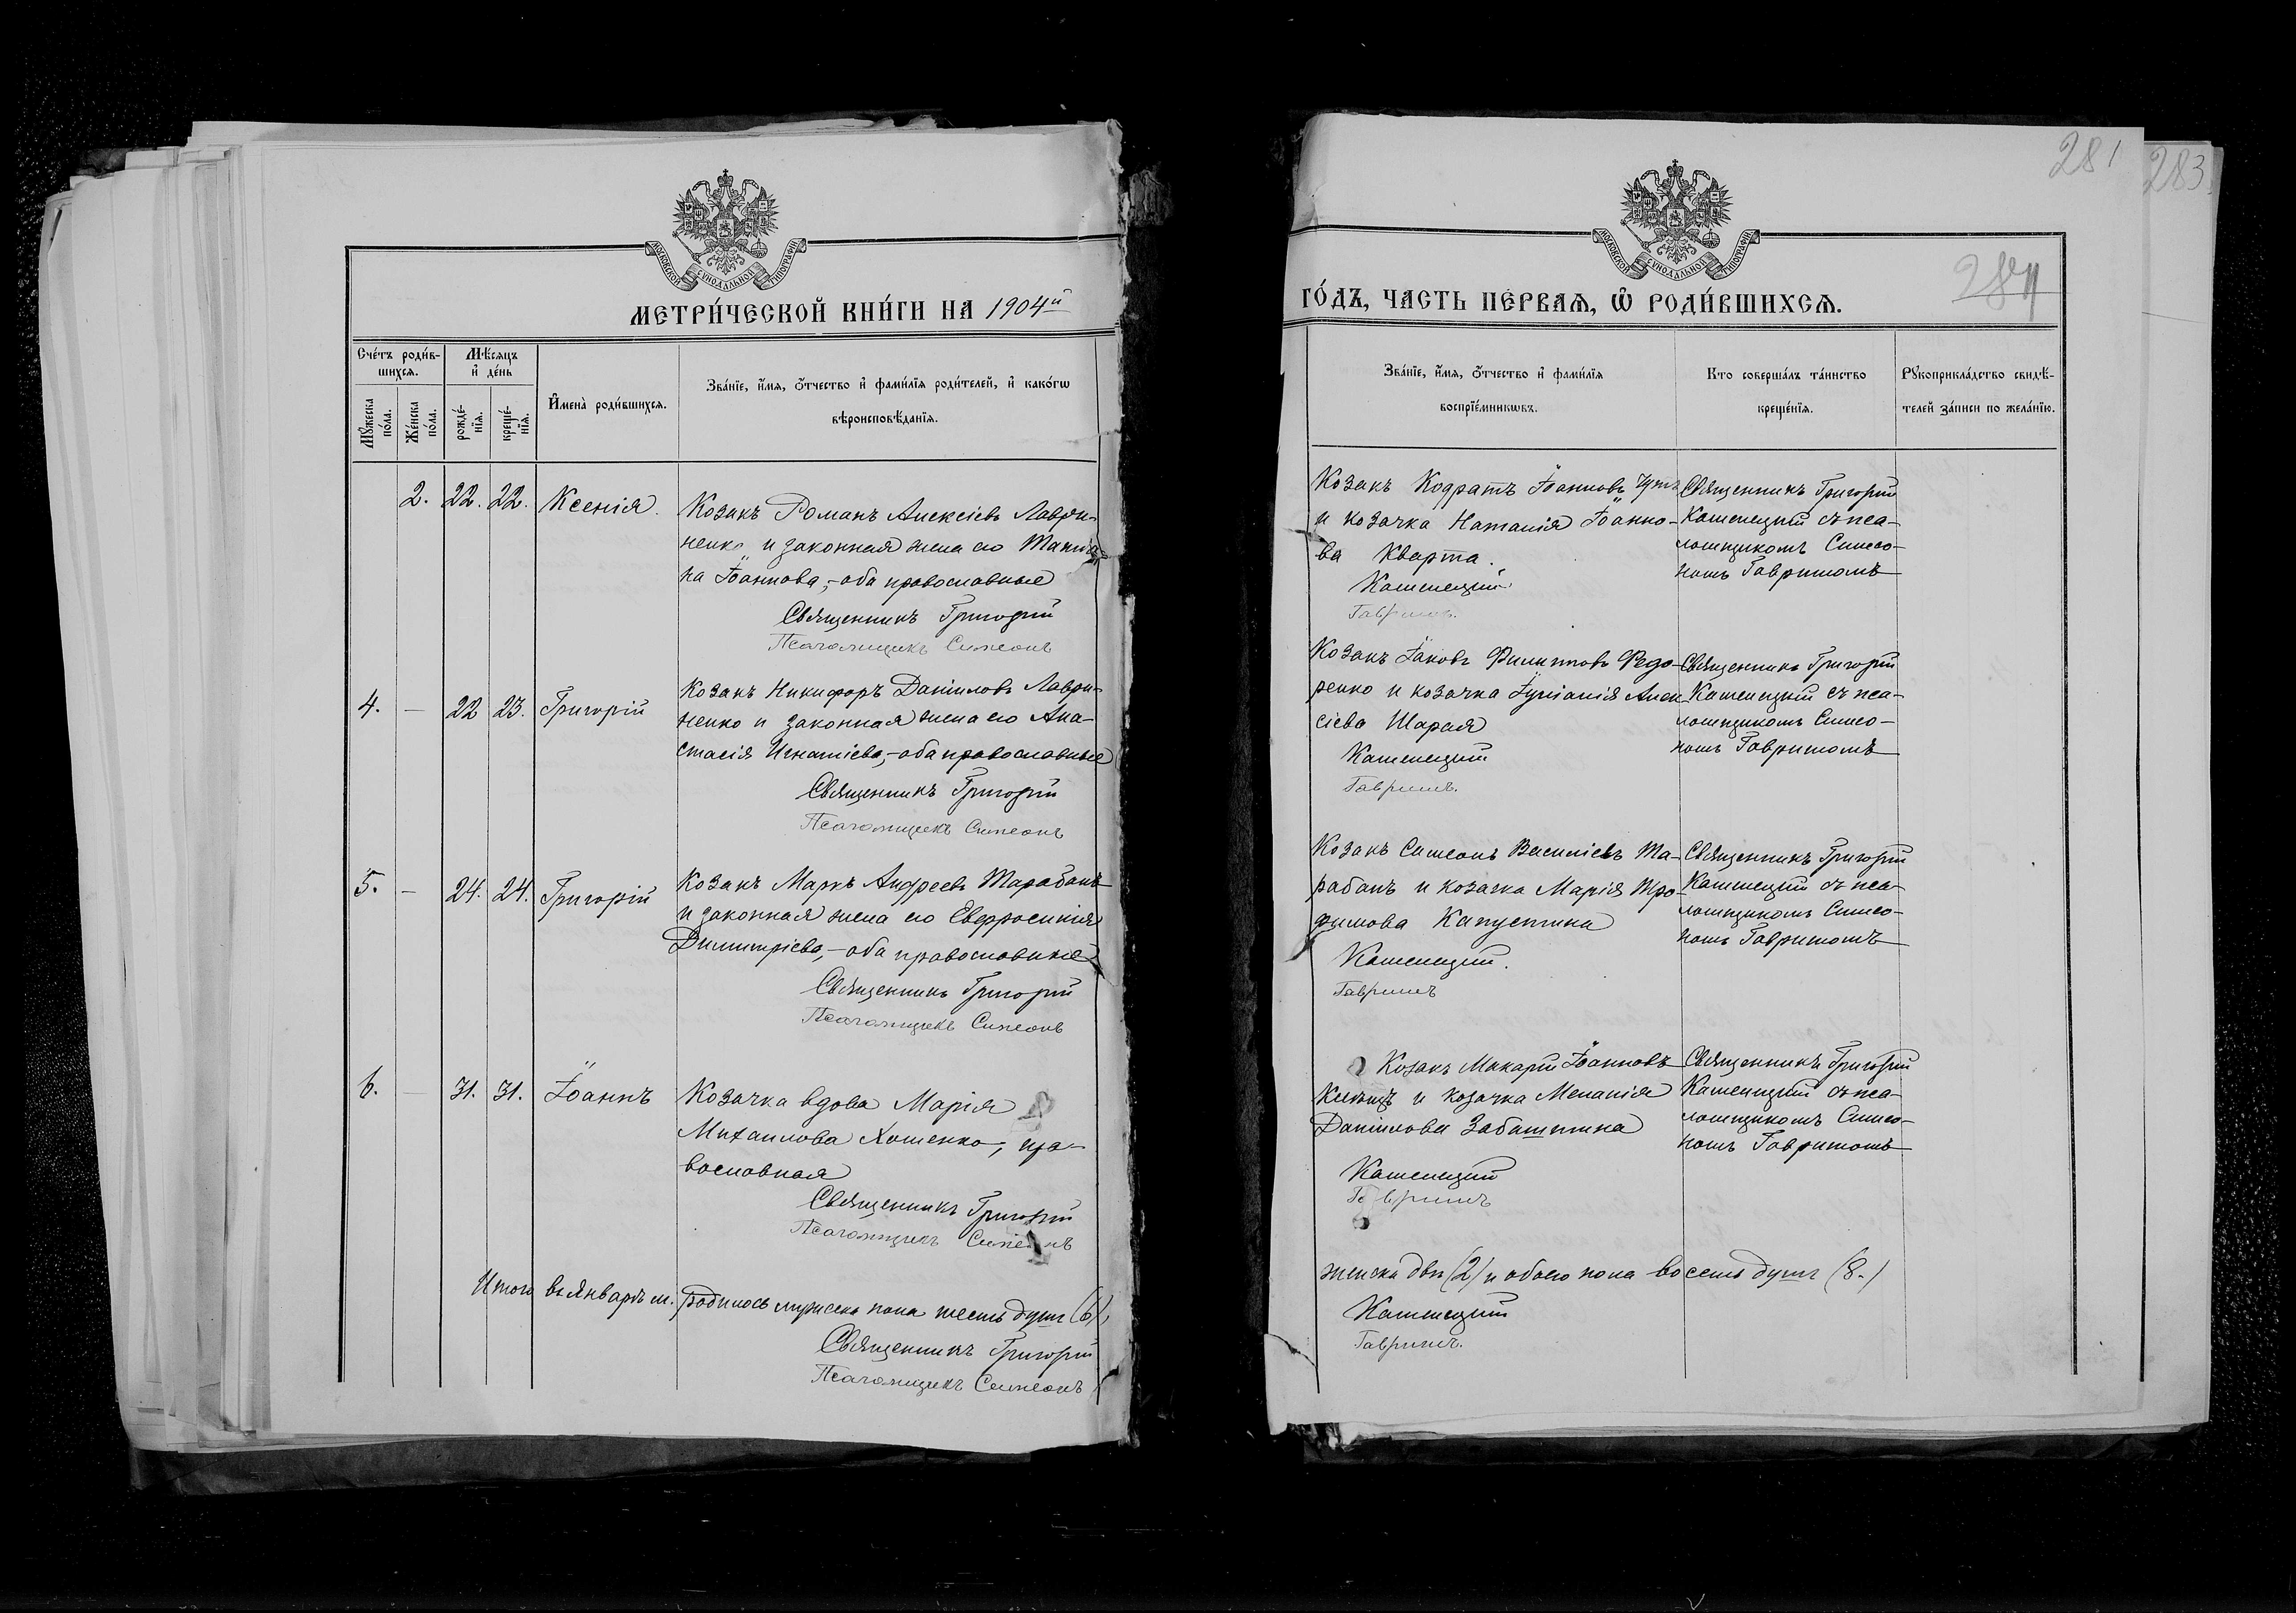 281
283
МОСКОВСКОЙ СѴНОДАЛЬНОЙ ТИПОГРАФІИ
МЕТРИ́ЧЕСКОЙ КНИ́ГИ НА 1904й
Сче́тъ роди́в-
шихсѧ.
Мѣ́сѧцъ
и҆ де́нь
Мꙋ́жеска
по́ла.
Же́нска
по́ла.
рожде́-
нїѧ.
креще́-
нїѧ.
И҆мена̀ роди́вшихсѧ.
Зва́нїе, и҆́мѧ, ѻ҆́тчество и҆ фами́лїѧ роди́телей, и҆ како́гѡ
вѣроисповѣ́данїѧ.
2. 22. 22. Ксенія.
Козакъ Романъ Алексіевъ Лаври-
ненко и законная жена его Татіа-
на Іоаннова,- оба православные
Священникъ Григорій
Псаломщикъ Симеонъ
4. — 22 23. Григорій
Козакъ Никифоръ Даніиловъ Лаври-
ненко и законная жена его Ана-
стасія Игнатіева,- оба православные
Священникъ Григорій
Псаломщикъ Симеонъ
5. — 24. 24. Григорій
Козакъ Маркъ Андреевъ Тарабанъ
и законная жена его Евфросинія
Димитріева,- оба православные
Священникъ Григорій
Псаломщикъ Симеонъ
6. — 31. 31. Іоаннъ
Козачка вдова Марія
Михаилова Хоменко, пра-
вославная
Священникъ Григорій
Псаломщикъ Симеонъ
Итого въ Январѣ м. родилось мужеска пола шесть душъ (6),
Священникъ Григорій
Псаломщикъ Симеонъ
МОСКОВСКОЙ СѴНОДАЛЬНОЙ ТИПОГРАФІИ
ГО́ДЪ, ЧАСТЬ ПЕ́РВАѦ, Ѡ҆ РОДИ́ВШИХСѦ.
Зва́нїе, и҆́мѧ, ѻ҆́тчество и҆ фами́лїѧ
воспрїе́мникѡвъ.
Кто соверша́лъ та́инство
креще́нїѧ.
Рꙋкоприкла́дство свидѣ́-
телей за́писи по жела́нїю.
Козакъ Кодратъ Іоанновъ
и козачка Наталія Іоанно-
ва Кварта.
Каменецкій
Гавришъ.
Священникъ Григорій
Каменецкій съ пса-
ломщикомъ Симео-
номъ Гавришомъ
Козакъ Іаковъ Филипповъ Федо-
ренко и козачка Іуліанія Алек-
сіева Шарая
Каменецкій
Гавришъ.
Священникъ Григорій
Каменецкій съ пса-
ломщикомъ Симео-
номъ Гавришомъ
Козакъ Симеонъ Василіевъ Та-
рабанъ и козачка Марія Тро-
фимова Капустина
Каменецкій.
Гавришъ
Священникъ Григорій
Каменецкій съ пса-
ломщикомъ Симео-
номъ Гавришомъ
Козакъ Макарій Іоанновъ
и козачка Меланія
Даніилова Забаштина
Каменецкій
Гавришъ
Священникъ Григорій
Каменецкій съ пса-
ломщикомъ Симео-
номъ Гавришомъ
женска двѣ (2) и обоего пола восемь душъ (8.)
Каменецкій
Гавришъ.